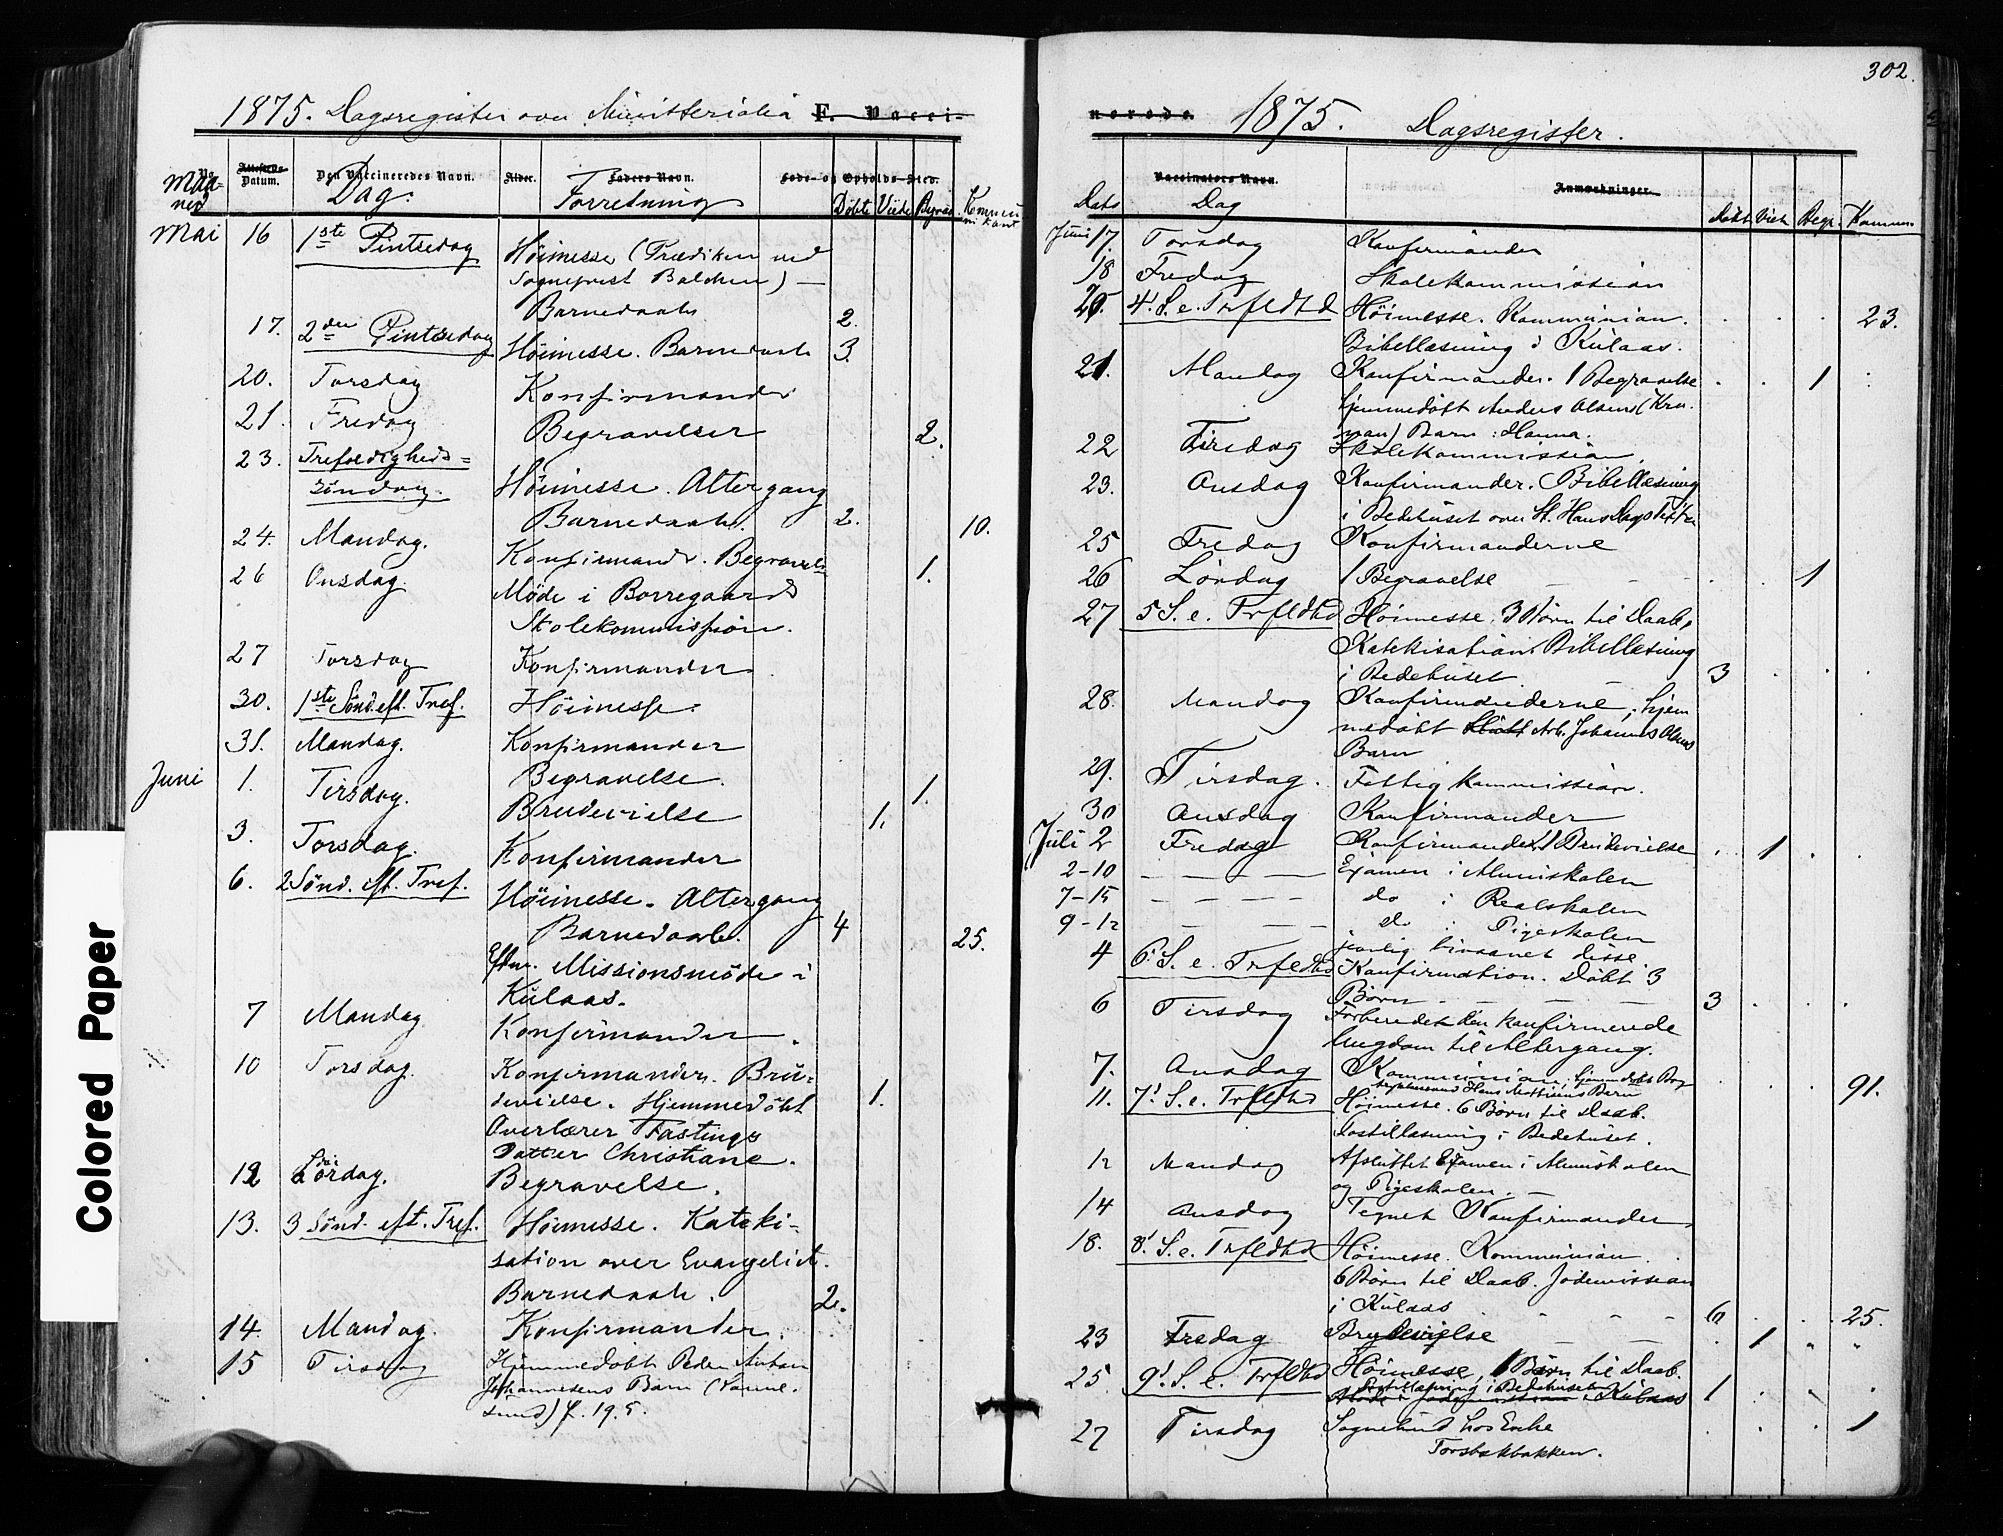 1875. Dagsregister over Ministerialia F. Vacci-
Maaned
No.
Attestens Datum.
Den Vaccineredes Navn.
Dag.
Alder.
Faders Navn.
Forretning
Føde- og Opholds-Sted.
Døbte Viede Begrav. Kommunikant
Mai 16 1ste Pintsedag Høimesse (Prædiken ved
Sognepræst Balchen) —
Barnedaab 2.
17. 2den Pintsedag Høimesse. Barnedaab 3.
20. Torsdag Konfirmander
21. Fredag Begravelser 2.
23. Trefoldigheds=
Søndag. Høimesse. Altergang
Barnedaab. 2. 10.
24. Mandag. Konfirmand. Begravels 1.
26 Onsdag. Møde i Borregaards
Skolekommission.
27 Torsdag Konfirmander
30. 1ste Sønd. eft. Tref. Høimesse.
31. Mandag. Konfirmander
Juni 1. Tirsdag. Begravelse. 1.
Brudevielse 1.
3. Torsdag. Konfirmander
6. 2 Sønd. eft. Tref. Høimesse. Altergang
Barnedaab. 4 25.
Eftm. Missionsmøde i
Kulaas.
7 Mandag Konfirmander.
10 Torsdag. Konfirmander. Bru-
devielse. Hjemmedøbt 1.
Overlærer Fastings
Datter Christiane.
12 Lørdag. Begravelse.
13. 3 Sønd. eft. Tref. Høimesse. Kateki-
sation over Evangeliet.
Barnedaab. 2.
14. Mandag. Konfirmander.
15 Tirsdag Hjemmedøbt Peder Anton
Johannesens Barn (Vanne-
sund) f. 19.5.
302.
norede. 1875. Dagsregister.
Vaccinators Navn.
Anmærkninger.
Dato Dag Døbt Viet Begr. Kommun.
Juni 17. Torsdag Konfirmander
18 Fredag Skolekommission
20. 4' S. e. Trfldhd Høimesse. Kommunion. 23.
Bibellæsning i Kulaas.
21. Mandag Konfirmander. 1 Begravelse 1
hjemmedøbt Anders Olsens (Kru-
man) Barn: Hanna.
22 Tirsdag Skolekommission.
23. Onsdag Konfirmander. Bibellæsning
i Bedehuset over St. Hans Dags Texter
25 Fredag Konfirmanderne
26 Lördag 1 Begravelse 1
27 5 S. e. Trfldhd Høimesse. 3 Börn til Daab,
Katekisation. Bibellæsning
i Bedehuset 3
28. Mandag Konfirmanderne; hjem
medøbt Arb. Johannes Olsens
Barn
29. Tirsdag. Fattigkommission.
30 Onsdag Konfirmander
Juli 2 Fredag Konfirmander 1 Brudevielse 1
2-10 — — — — Examen i Almuskolen
7-15 — — — — do i Realskolen
9-12 — — — do i Pigeskolen
jevnlig bivaanet disse.
4 6' S. e. Trfldhd Konfirmation. Døbt 3
Børn 3
6 Tirsdag Forberedet den konfirmerede
Ungdom til Altergang.
7. Onsdag Kommunion, hjemmedøbt 91.
Hans Barn
11. 7' S. e. Trfldhd Høimesse. 6 Børn til Daab.
Postillæsning i Bedehuset.
12 Mandag Afsluttet Examen i Almuskolen
og Pigeskolen. —
14 Onsdag Tegnet Konfirmander
18. 8' S. e. Trfldhd Høimesse. Kommunion.
6 Børn til Daab. Jødemission
i Kulaas 6 25.
23 Fredag Brudevielse 1
25 9' S. e. Trfldhd Høimesse, 1 Barn til Daab.
Postillæsning i Bedehuset
Kulaas 1
27 Tirsdag Sognebud hos Enke 1
Torsbækbakken.
Colored Paper